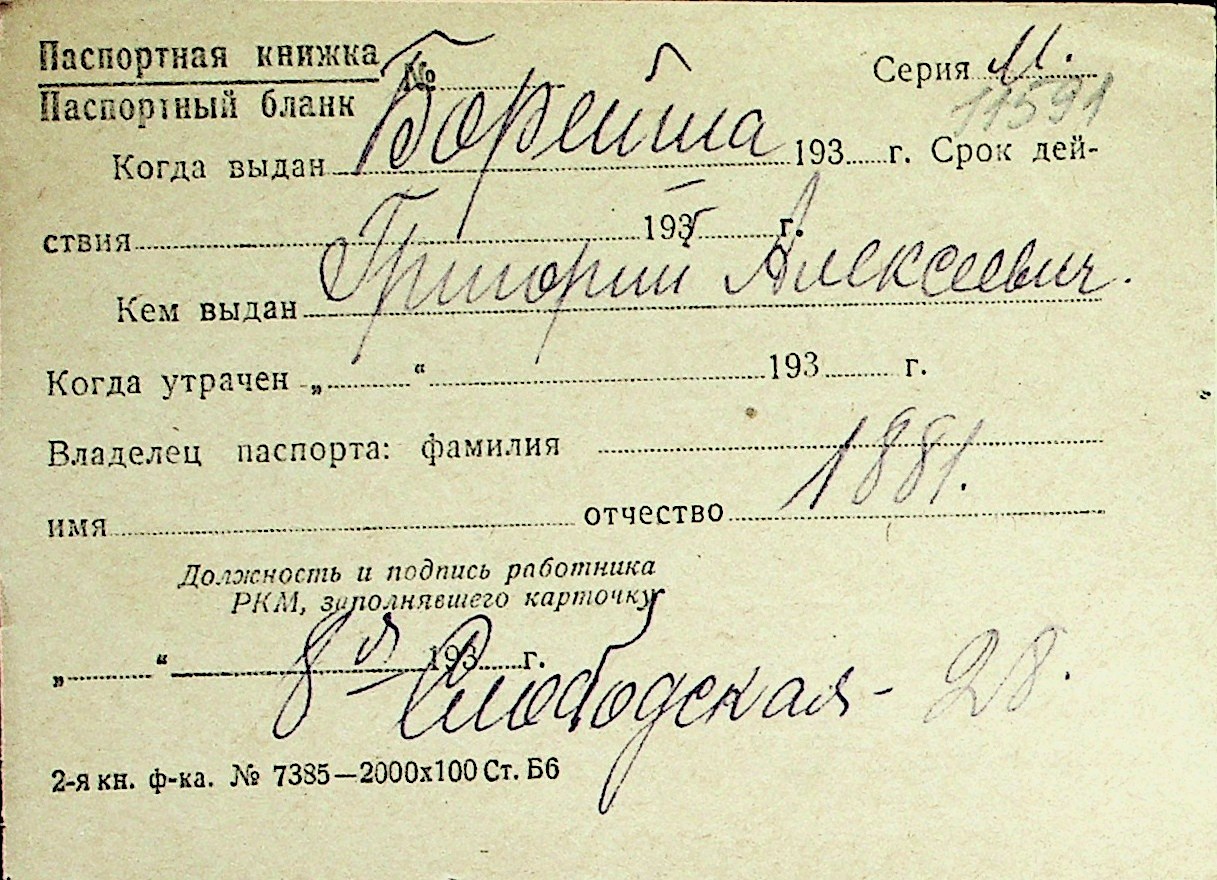 Паспортная книжка № Серия И.
Паспортный бланк 11591
Когда выдан Борейша 193 г. Срок дей-
ствия 193 г.
Кем выдан Григорий Алексеевич.
Когда утрачен „ “ 193 г.
Владелец паспорта: фамилия
1881.
имя отчество
Должность и подпись работника
РКМ, заполнявшего карточку
„ “ 193 г.
8я Слободская - 28.
2-я кн. ф-ка. № 7385—2000х100 Ст. Б6